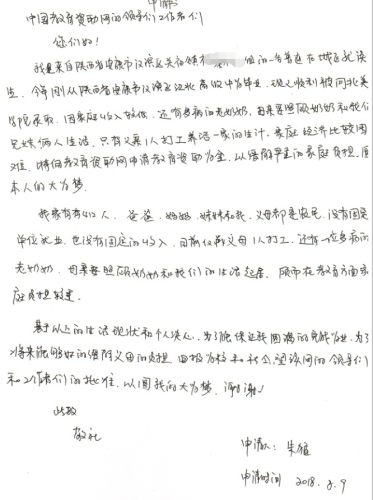 申请书
中国教育资助网的领导们工作者们
您们好！
我是来自陕西省安康市汉滨区关家镇 组的一名普通在城区就读
生，今年刚从陕西省安康市汉滨区 高级中学毕业，现又顺利被河北美
学院录取，因家庭收入较低，还有多病的老奶奶，母亲要照顾奶奶和我们
兄妹俩人生活，只有父亲1人打工养活一家的生计，家庭经济比较困
难，特向教育资助网申请教育资助 金，以缓解 的家庭负担，圆
本人的大学梦。
我家有 口人，爸爸、妈妈、妹妹和我，父母都是农民，没有固定
单位就业，也没有固定的收入，目前仅靠父母1人打工，还有一位多病的
老奶奶，母亲要照顾奶奶和我们的生活起居，所以在教育方面家
庭负担较重。
基于以上的生活现状和个人决心，为了能保证我圆满的完成学业，为了
将来能够好的 父母的负担，回报学校和社会，望该网的领导们
和工作者们的批准，以圆我的大学梦，谢谢！
此致
敬礼
申请人：朱
申请时间 2018.8.9